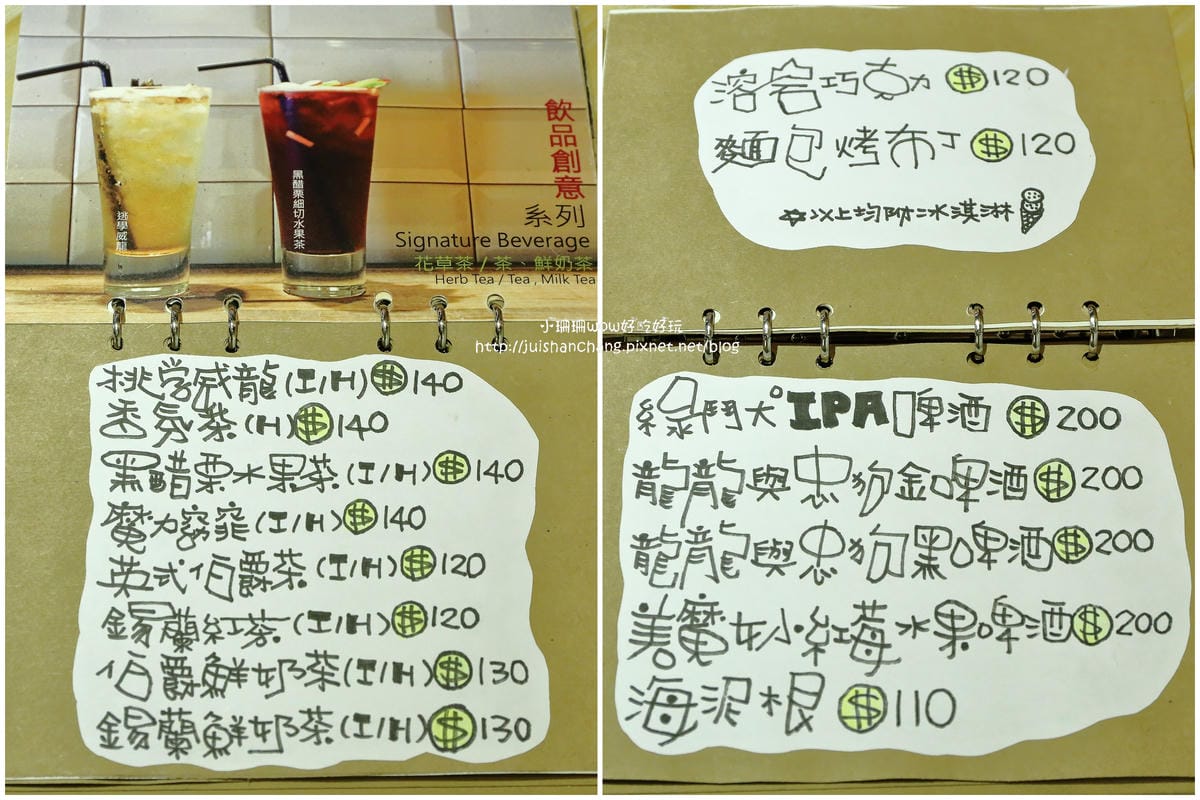 飲品創意
系列
Signature Beverage
花草茶 / 茶、鮮奶茶
Herb Tea / Tea , Milk Tea
逃學威龍
黑醋栗細切水果茶
挑学威龍(I/H)$140
透氛茶(H)$140
黑醋栗水果茶(I/H)$140
魔力窈窕(I/H)$140
英式伯爵茶(I/H)$120
錫蘭紅茶(I/H)$120
伯爵鮮奶茶(I/H)$130
錫蘭鮮奶茶(I/H)$130
溶岩巧克力$120
麵包烤布丁$120
☆以上均附冰淇淋
小珊珊wow好吃好玩
http://juishanchang.pixnet.net/blog
綠鬥犬IPA啤酒$200
龍龍與忠狗金啤酒$200
龍龍與忠狗黑啤酒$200
美魔女小紅莓水果啤酒$200
海泥根$110